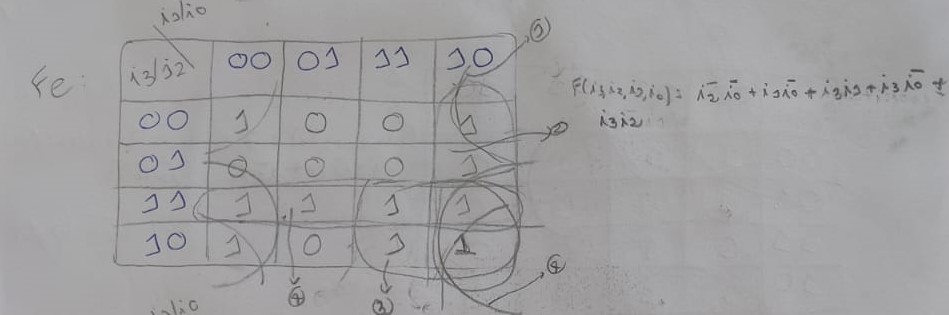 i1/i0
Fe:
i3/i2 00 01 11 10
00 1 0 0 1
01 0 0 0 1
11 1 1 1 1
10 1 0 1 1
①
②
③
④
④
F(i3,i2,i1,i0) = i̅2 i̅0 + i1 i̅0 + i3 i1 + i3 i̅0 +
i3 i2
i1/i0